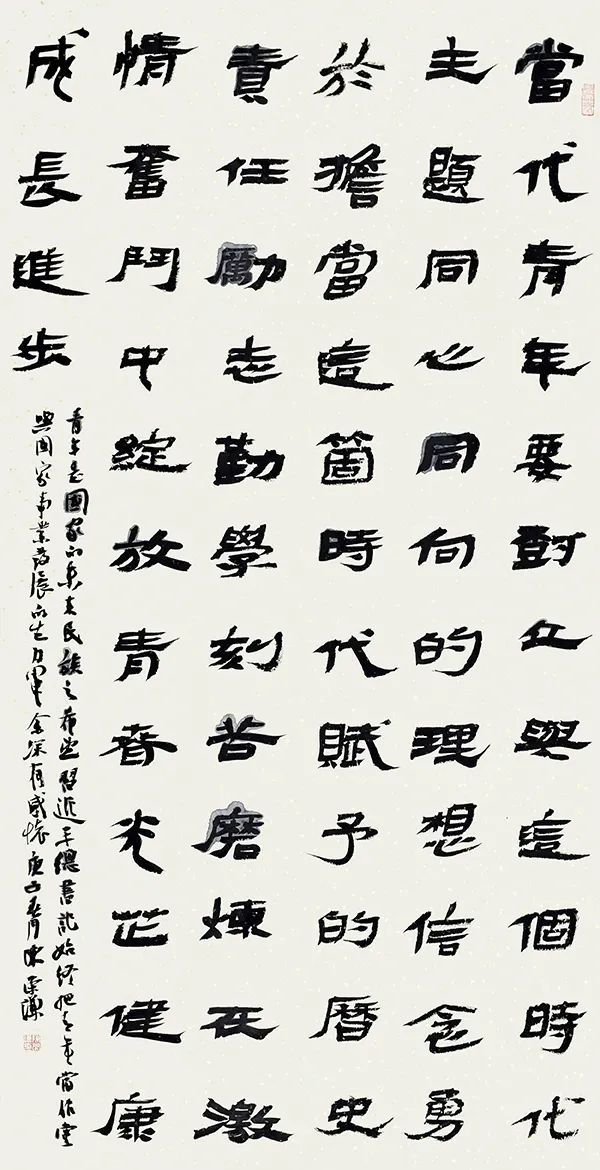 當代青年要對立與這個時代
主題同心同向的理想信念勇
於擔當這箇時代賦予的曆史
責任勵志勤學刻苦磨煉在激
情奮鬥中綻放青春光芒健康
成長進步
青年是國家的未來民族之希望習近平總書記始終把青年當作黨
與國家事業發展的生力軍余深有感懷庚子春月